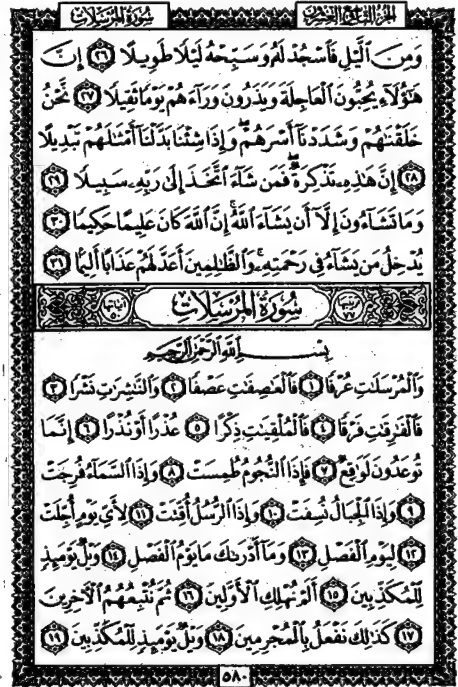 سُورَةُ المُرْسَلَات الجزء التاسع والعشرون
وَمِنَ ٱلَّيْلِ فَٱسْجُدْ لَهُۥ وَسَبِّحْهُ لَيْلًا طَوِيلًا ٢٦ إِنَّ
هَٰٓؤُلَآءِ يُحِبُّونَ ٱلْعَاجِلَةَ وَيَذَرُونَ وَرَآءَهُمْ يَوْمًا ثَقِيلًا ٢٧ نَّحْنُ
خَلَقْنَٰهُمْ وَشَدَدْنَآ أَسْرَهُمْ ۖ وَإِذَا شِئْنَا بَدَّلْنَآ أَمْثَٰلَهُمْ تَبْدِيلًا
٢٨ إِنَّ هَٰذِهِۦ تَذْكِرَةٌ ۖ فَمَن شَآءَ ٱتَّخَذَ إِلَىٰ رَبِّهِۦ سَبِيلًا ٢٩
وَمَا تَشَآءُونَ إِلَّآ أَن يَشَآءَ ٱللَّهُ ۚ إِنَّ ٱللَّهَ كَانَ عَلِيمًا حَكِيمًا ٣٠
يُدْخِلُ مَن يَشَآءُ فِى رَحْمَتِهِۦ ۚ وَٱلظَّٰلِمِينَ أَعَدَّ لَهُمْ عَذَابًا أَلِيمًۢا ٣١
ترتيبها ٧٧ سُورَةُ المُرْسَلَات آياتها ٥٠
بِسْمِ ٱللَّهِ ٱلرَّحْمَٰنِ ٱلرَّحِيمِ
وَٱلْمُرْسَلَٰتِ عُرْفًا ١ فَٱلْعَٰصِفَٰتِ عَصْفًا ٢ وَٱلنَّٰشِرَٰتِ نَشْرًا ٣
فَٱلْفَٰرِقَٰتِ فَرْقًا ٤ فَٱلْمُلْقِيَٰتِ ذِكْرًا ٥ عُذْرًا أَوْ نُذْرًا ٦ إِنَّمَا
تُوعَدُونَ لَوَٰقِعٌ ٧ فَإِذَا ٱلنُّجُومُ طُمِسَتْ ٨ وَإِذَا ٱلسَّمَآءُ فُرِجَتْ
٩ وَإِذَا ٱلْجِبَالُ نُسِفَتْ ١٠ وَإِذَا ٱلرُّسُلُ أُقِّتَتْ ١١ لِأَىِّ يَوْمٍ أُجِّلَتْ
١٢ لِيَوْمِ ٱلْفَصْلِ ١٣ وَمَآ أَدْرَىٰكَ مَا يَوْمُ ٱلْفَصْلِ ١٤ وَيْلٌ يَوْمَئِذٍ
لِّلْمُكَذِّبِينَ ١٥ أَلَمْ نُهْلِكِ ٱلْأَوَّلِينَ ١٦ ثُمَّ نُتْبِعُهُمُ ٱلْءَاخِرِينَ
١٧ كَذَٰلِكَ نَفْعَلُ بِٱلْمُجْرِمِينَ ١٨ وَيْلٌ يَوْمَئِذٍ لِّلْمُكَذِّبِينَ ١٩
٥٨٠